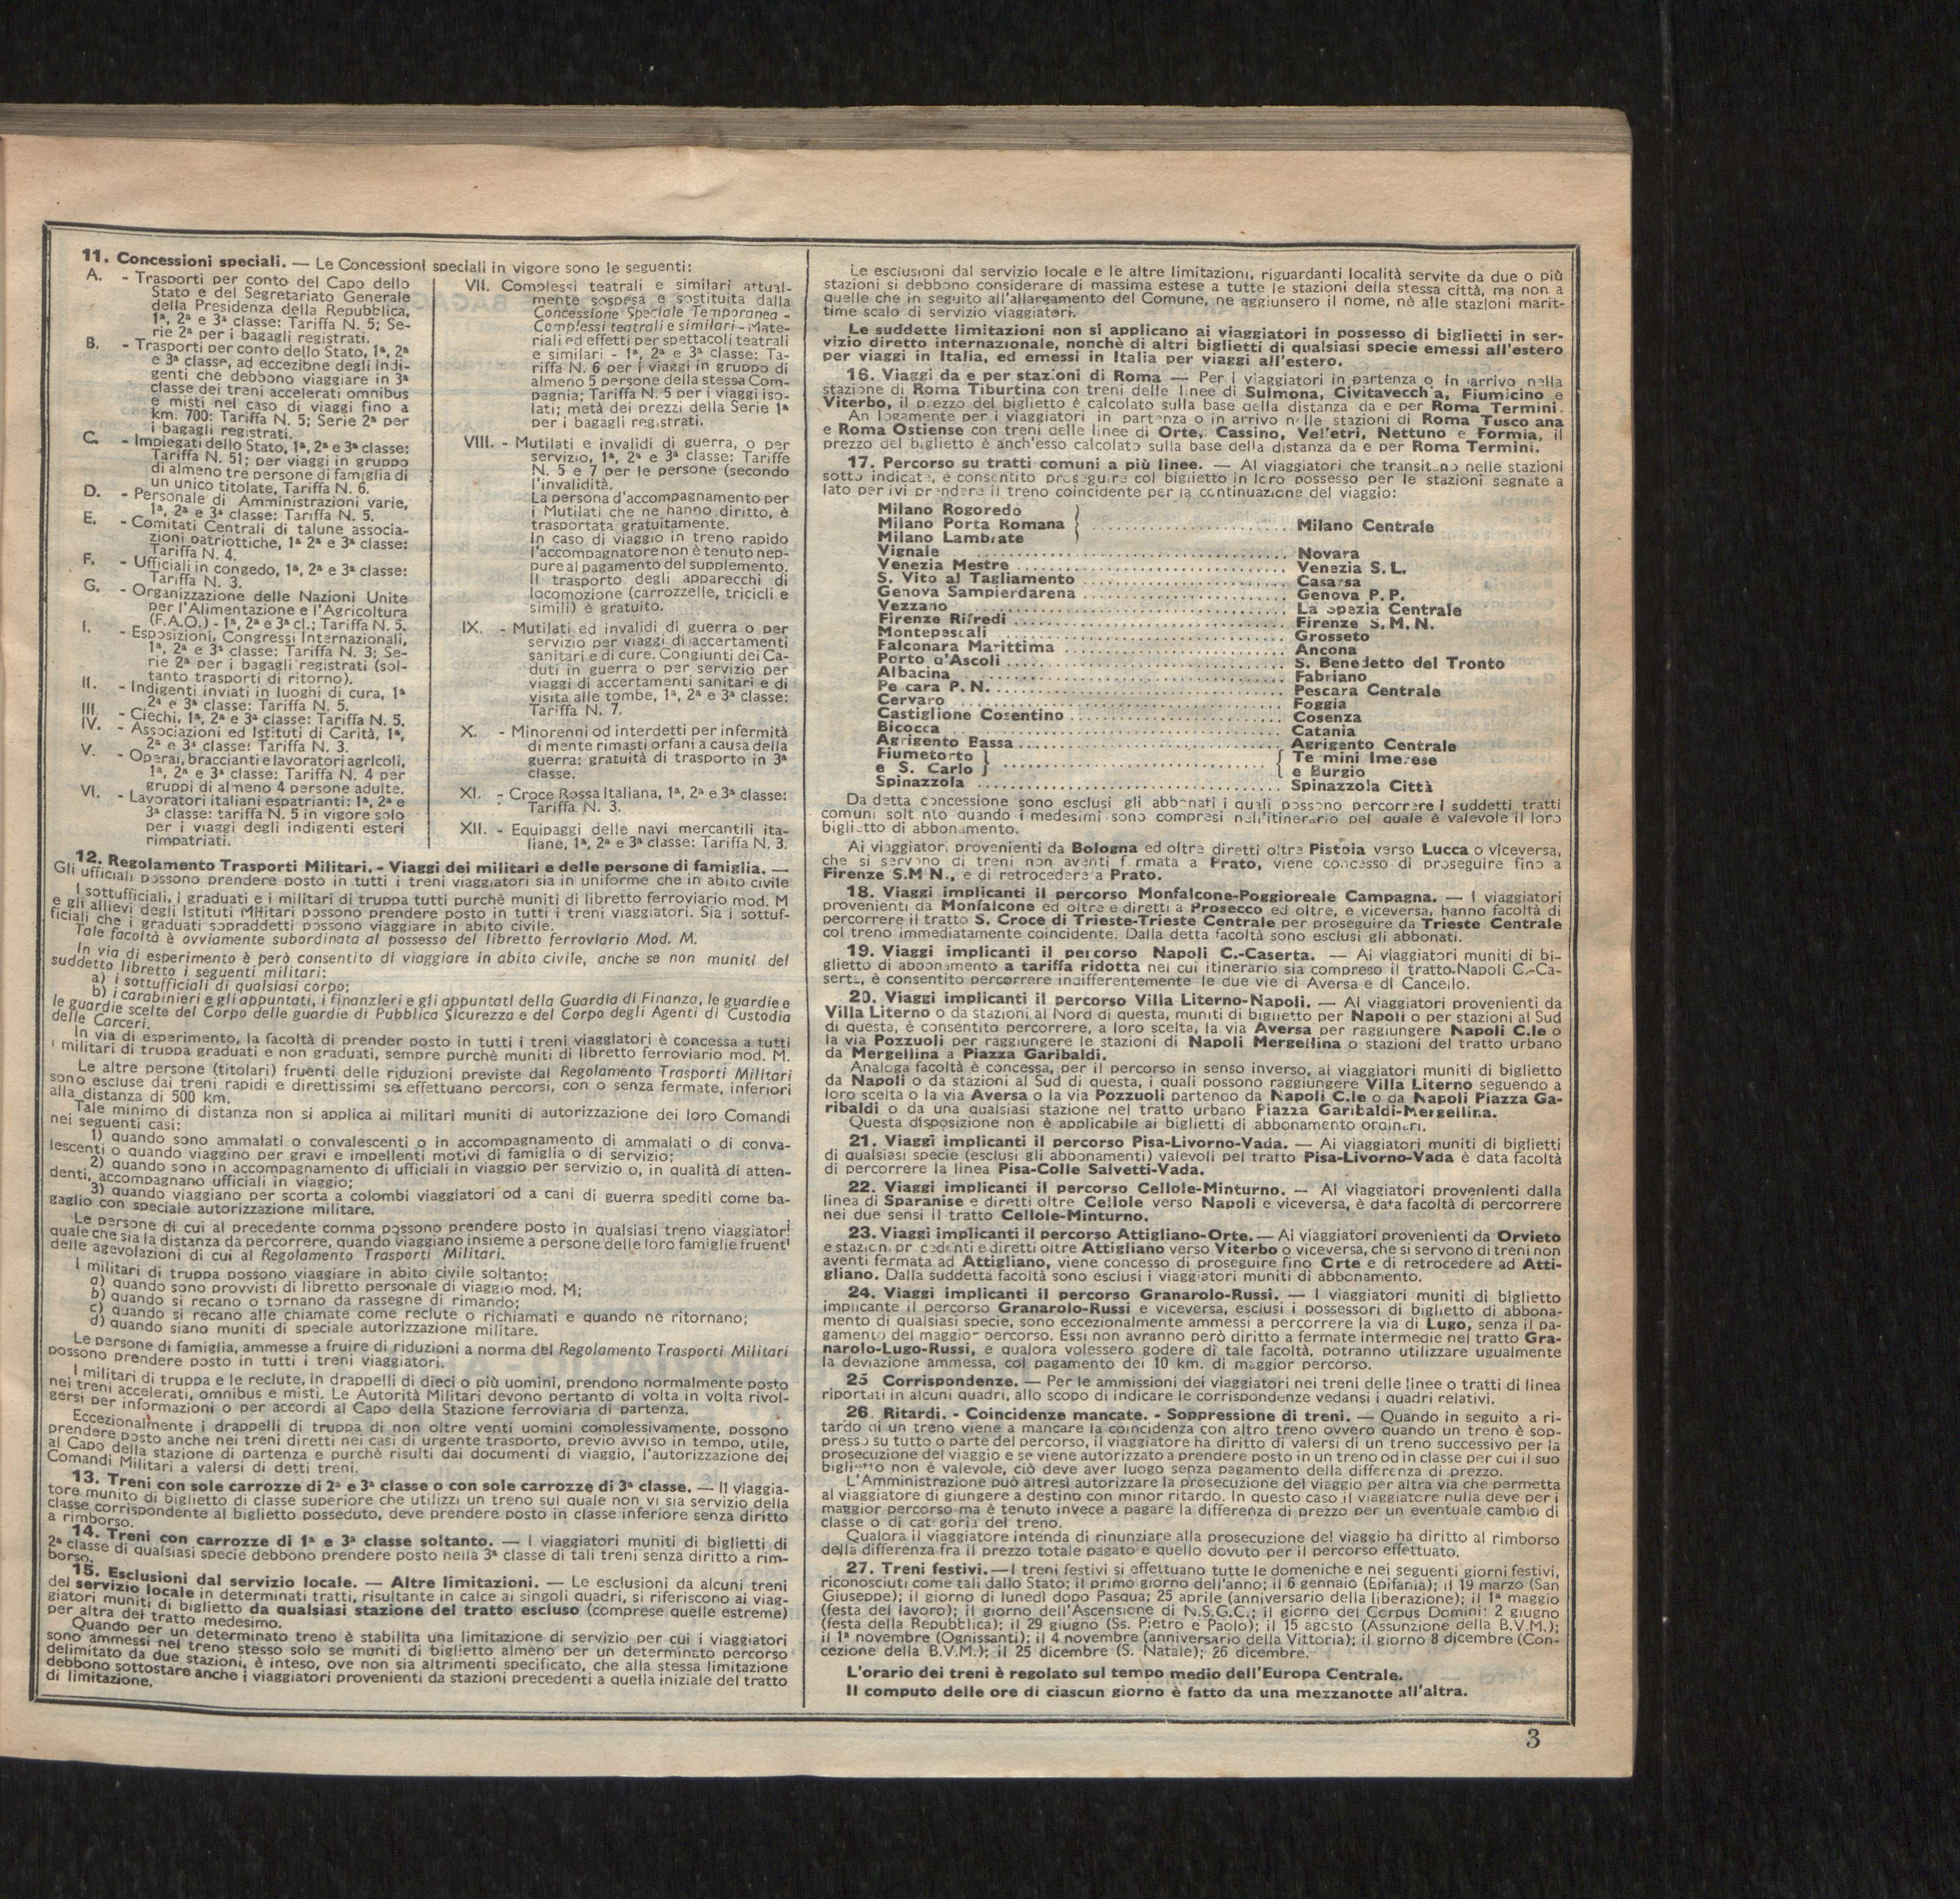 11. Concessioni speciali. — Le Concessioni speciali in vigore sono le seguenti:
A. - Trasporti per conto del Capo dello
Stato e del Segretariato Generale
della Presidenza della Repubblica,
1ª, 2ª e 3ª classe: Tariffa N. 5; Se-
rie 2ª per i bagagli registrati.
B. - Trasporti per conto dello Stato, 1ª, 2ª
e 3ª classe, ad eccezione degli indi-
genti che debbono viaggiare in 3ª
classe dei treni accelerati omnibus
e misti nel caso di viaggi fino a
km. 700: Tariffa N. 5; Serie 2ª per
i bagagli registrati.
C. - Impiegati dello Stato, 1ª, 2ª e 3ª classe:
Tariffa N. 51; per viaggi in gruppo
di almeno tre persone di famiglia di
un unico titolate, Tariffa N. 6.
D. - Personale di Amministrazioni varie,
1ª, 2ª e 3ª classe: Tariffa N. 5.
E. - Comitati Centrali di talune associa-
zioni patriottiche, 1ª 2ª e 3ª classe:
Tariffa N. 4.
F. - Ufficiali in congedo, 1ª, 2ª e 3ª classe:
Tariffa N. 3.
G. - Organizzazione delle Nazioni Unite
per l'Alimentazione e l'Agricoltura
(F.A.O.) - 1ª, 2ª e 3ª cl.; Tariffa N. 5.
I. - Esposizioni, Congressi Internazionali,
1ª, 2ª e 3ª classe: Tariffa N. 3; Se-
rie 2ª per i bagagli registrati (sol-
tanto trasporti di ritorno).
II. - Indigenti inviati in luoghi di cura, 1ª
2ª e 3ª classe: Tariffa N. 5.
III. - Ciechi, 1ª, 2ª e 3ª classe: Tariffa N. 5.
IV. - Associazioni ed Istituti di Carità, 1ª,
2ª e 3ª classe: Tariffa N. 3.
V. - Operai, braccianti e lavoratori agricoli,
1ª, 2ª e 3ª classe: Tariffa N. 4 per
gruppi di almeno 4 persone adulte.
VI. - Lavoratori italiani espatrianti: 1ª, 2ª e
3ª classe: tariffa N. 5 in vigore solo
per i viaggi degli indigenti esteri
rimpatriati.
VII. Complessi teatrali e similari attual-
mente sospesa e sostituita dalla
Concessione Speciale Temporanea -
Complessi teatrali e similari - Mate-
riali ed effetti per spettacoli teatrali
e similari - 1ª, 2ª e 3ª classe: Ta-
riffa N. 6 per i viaggi in gruppo di
almeno 5 persone della stessa Com-
pagnia; Tariffa N. 5 per i viaggi iso-
lati; metà dei prezzi della Serie 1ª
per i bagagli registrati.
VIII. - Mutilati e invalidi di guerra, o per
servizio, 1ª, 2ª e 3ª classe: Tariffe
N. 5 e 7 per le persone (secondo
l'invalidità.
La persona d'accompagnamento per
i Mutilati che ne hanno diritto, è
trasportata gratuitamente.
In caso di viaggio in treno rapido
l'accompagnatore non è tenuto nep-
pure al pagamento del supplemento.
Il trasporto degli apparecchi di
locomozione (carrozzelle, tricicli e
simili) è gratuito.
IX. - Mutilati ed invalidi di guerra o per
servizio per viaggi di accertamenti
sanitari e di cure. Congiunti dei Ca-
duti in guerra o per servizio per
viaggi di accertamenti sanitari e di
visita alle tombe, 1ª, 2ª e 3ª classe:
Tariffa N. 7.
X. - Minorenni od interdetti per infermità
di mente rimasti orfani a causa della
guerra: gratuità di trasporto in 3ª
classe.
XI. - Croce Rossa Italiana, 1ª, 2ª e 3ª classe:
Tariffa N. 3.
XII. - Equipaggi delle navi mercantili ita-
liane, 1ª, 2ª e 3ª classe: Tariffa N. 3.
12. Regolamento Trasporti Militari. - Viaggi dei militari e delle persone di famiglia. —
Gli ufficiali possono prendere posto in tutti i treni viaggiatori sia in uniforme che in abito civile
I sottufficiali, i graduati e i militari di truppa tutti purchè muniti di libretto ferroviario mod. M
e gli allievi degli Istituti Militari possono prendere posto in tutti i treni viaggiatori. Sia i sottuf-
ficiali che i graduati sopraddetti possono viaggiare in abito civile.
Tale facoltà è ovviamente subordinata al possesso del libretto ferroviario Mod. M.
In via di esperimento è però consentito di viaggiare in abito civile, anche se non muniti del
suddetto libretto i seguenti militari:
a) i sottufficiali di qualsiasi corpo;
b) i carabinieri e gli appuntati, i finanzieri e gli appuntati della Guardia di Finanza, le guardie e
le guardie scelte del Corpo delle guardie di Pubblica Sicurezza e del Corpo degli Agenti di Custodia
delle Carceri.
In via di esperimento, la facoltà di prender posto in tutti i treni viaggiatori è concessa a tutti
i militari di truppa graduati e non graduati, sempre purchè muniti di libretto ferroviario mod. M.
Le altre persone (titolari) fruenti delle riduzioni previste dal Regolamento Trasporti Militari
sono escluse dai treni rapidi e direttissimi se effettuano percorsi, con o senza fermate, inferiori
alla distanza di 500 km.
Tale minimo di distanza non si applica ai militari muniti di autorizzazione dei loro Comandi
nei seguenti casi:
1) quando sono ammalati o convalescenti o in accompagnamento di ammalati o di conva-
lescenti o quando viaggino per gravi e impellenti motivi di famiglia o di servizio;
2) quando sono in accompagnamento di ufficiali in viaggio per servizio o, in qualità di atten-
denti, accompagnano ufficiali in viaggio;
3) quando viaggiano per scorta a colombi viaggiatori od a cani di guerra spediti come ba-
gaglio con speciale autorizzazione militare.
Le persone di cui al precedente comma possono prendere posto in qualsiasi treno viaggiatori
quale che sia la distanza da percorrere, quando viaggiano insieme a persone delle loro famiglie fruenti
delle agevolazioni di cui al Regolamento Trasporti Militari.
I militari di truppa possono viaggiare in abito civile soltanto:
a) quando sono provvisti di libretto personale di viaggio mod. M;
b) quando si recano o tornano da rassegne di rimando;
c) quando si recano alle chiamate come reclute o richiamati e quando ne ritornano;
d) quando siano muniti di speciale autorizzazione militare.
Le persone di famiglia, ammesse a fruire di riduzioni a norma del Regolamento Trasporti Militari
possono prendere posto in tutti i treni viaggiatori.
I militari di truppa e le reclute, in drappelli di dieci o più uomini, prendono normalmente posto
nei treni accelerati, omnibus e misti. Le Autorità Militari devono pertanto di volta in volta rivol-
gersi per informazioni o per accordi al Capo della Stazione ferroviaria di partenza.
Eccezionalmente i drappelli di truppa di non oltre venti uomini complessivamente, possono
prendere posto anche nei treni diretti nei casi di urgente trasporto, previo avviso in tempo, utile,
al Capo della stazione di partenza e purchè risulti dai documenti di viaggio, l'autorizzazione dei
Comandi Militari a valersi di detti treni.
13. Treni con sole carrozze di 2ª e 3ª classe o con sole carrozze di 3ª classe. — Il viaggia-
tore munito di biglietto di classe superiore che utilizzi un treno sul quale non vi sia servizio della
classe corrispondente al biglietto posseduto, deve prendere posto in classe inferiore senza diritto
a rimborso.
14. Treni con carrozze di 1ª e 3ª classe soltanto. — I viaggiatori muniti di biglietti di
2ª classe di qualsiasi specie debbono prendere posto nella 3ª classe di tali treni senza diritto a rim-
borso.
15. Esclusioni dal servizio locale. — Altre limitazioni. — Le esclusioni da alcuni treni
del servizio locale in determinati tratti, risultante in calce ai singoli quadri, si riferiscono ai viag-
giatori muniti di biglietto da qualsiasi stazione del tratto escluso (comprese quelle estreme)
per altra del tratto medesimo.
Quando per un determinato treno è stabilita una limitazione di servizio per cui i viaggiatori
sono ammessi nel treno stesso solo se muniti di biglietto almeno per un determinato percorso
delimitato da due stazioni, è inteso, ove non sia altrimenti specificato, che alla stessa limitazione
debbono sottostare anche i viaggiatori provenienti da stazioni precedenti a quella iniziale del tratto
di limitazione.
Le esclusioni dal servizio locale e le altre limitazioni, riguardanti località servite da due o più
stazioni si debbono considerare di massima estese a tutte le stazioni della stessa città, ma non a
quelle che in seguito all'allargamento del Comune, ne aggiunsero il nome, nè alle stazioni marit-
time scalo di servizio viaggiatori.
Le suddette limitazioni non si applicano ai viaggiatori in possesso di biglietti in ser-
vizio diretto internazionale, nonchè di altri biglietti di qualsiasi specie emessi all'estero
per viaggi in Italia, ed emessi in Italia per viaggi all'estero.
16. Viaggi da e per stazioni di Roma — Per i viaggiatori in partenza o in arrivo nella
stazione di Roma Tiburtina con treni delle linee di Sulmona, Civitavecch'a, Fiumicino e
Viterbo, il prezzo del biglietto è calcolato sulla base della distanza da e per Roma Termini.
An logamente per i viaggiatori in partenza o in arrivo nelle stazioni di Roma Tusco ana
e Roma Ostiense con treni delle linee di Orte, Cassino, Velletri, Nettuno e Formia, il
prezzo del biglietto è anch'esso calcolato sulla base della distanza da e per Roma Termini.
17. Percorso su tratti comuni a più linee. — Ai viaggiatori che transitano nelle stazioni
sotto indicate, è consentito proseguire col biglietto in loro possesso per le stazioni segnate a
lato per ivi prendere il treno coincidente per la continuazione del viaggio:
Milano Rogoredo
Milano Porta Romana } ........ Milano Centrale
Milano Lambrate
Vignale ........ Novara
Venezia Mestre ........ Venezia S.L.
S. Vito al Tagliamento ........ Casarsa
Genova Sampierdarena ........ Genova P.P.
Vezzano ........ La Spezia Centrale
Firenze Rifredi ........ Firenze S.M.N.
Montepescali ........ Grosseto
Falconara Marittima ........ Ancona
Porto d'Ascoli ........ S. Benedetto del Tronto
Albacina ........ Fabriano
Pe cara P.N. ........ Pescara Centrale
Cervaro ........ Foggia
Castiglione Cosentino ........ Cosenza
Bicocca ........ Catania
Agrigento Bassa ........ Agrigento Centrale
Fiumetorto } ........ { Te mini Imerese
e S. Carlo } ........ { e Burgio
Spinazzola ........ Spinazzola Città
Da detta concessione sono esclusi gli abbonati i quali possono percorrere i suddetti tratti
comuni solt nto quando i medesimi sono compresi nell'itinerario pel quale è valevole il loro
biglietto di abbonamento.
Ai viaggiatori provenienti da Bologna ed oltre diretti oltre Pistoia verso Lucca o viceversa,
che si servono di treni non aventi f rmata a Prato, viene concesso di proseguire fino a
Firenze S.M N., e di retrocedere a Prato.
18. Viaggi implicanti il percorso Monfalcone-Poggioreale Campagna. — I viaggiatori
provenienti da Monfalcone ed oltre e diretti a Prosecco ed oltre, e viceversa, hanno facoltà di
percorrere il tratto S. Croce di Trieste-Trieste Centrale per proseguire da Trieste Centrale
col treno immediatamente coincidente. Dalla detta facoltà sono esclusi gli abbonati.
19. Viaggi implicanti il percorso Napoli C.-Caserta. — Ai viaggiatori muniti di bi-
glietto di abbonamento a tariffa ridotta nel cui itinerario sia compreso il tratto Napoli C.-Ca-
serta, è consentito percorrere indifferentemente le due vie di Aversa e di Cancello.
20. Viaggi implicanti il percorso Villa Literno-Napoli. — Ai viaggiatori provenienti da
Villa Literno o da stazioni al Nord di questa, muniti di biglietto per Napoli o per stazioni al Sud
di questa, è consentito percorrere, a loro scelta, la via Aversa per raggiungere Napoli C.le o
la via Pozzuoli per raggiungere le stazioni di Napoli Mergellina o stazioni del tratto urbano
da Mergellina a Piazza Garibaldi.
Analoga facoltà è concessa, per il percorso in senso inverso, ai viaggiatori muniti di biglietto
da Napoli o da stazioni al Sud di questa, i quali possono raggiungere Villa Literno seguendo a
loro scelta o la via Aversa o la via Pozzuoli partendo da Napoli C.le o da Napoli Piazza Ga-
ribaldi o da una qualsiasi stazione nel tratto urbano Piazza Garibaldi-Mergellina.
Questa disposizione non è applicabile ai biglietti di abbonamento ordinari.
21. Viaggi implicanti il percorso Pisa-Livorno-Vada. — Ai viaggiatori muniti di biglietti
di qualsiasi specie (esclusi gli abbonamenti) valevoli pel tratto Pisa-Livorno-Vada è data facoltà
di percorrere la linea Pisa-Colle Salvetti-Vada.
22. Viaggi implicanti il percorso Cellole-Minturno. — Ai viaggiatori provenienti dalla
linea di Sparanise e diretti oltre Cellole verso Napoli e viceversa, è data facoltà di percorrere
nei due sensi il tratto Cellole-Minturno.
23. Viaggi implicanti il percorso Attigliano-Orte. — Ai viaggiatori provenienti da Orvieto
e stazion. pr cedenti e diretti oltre Attigliano verso Viterbo o viceversa, che si servono di treni non
aventi fermata ad Attigliano, viene concesso di proseguire fino Orte e di retrocedere ad Atti-
gliano. Dalla suddetta facoltà sono esclusi i viaggiatori muniti di abbonamento.
24. Viaggi implicanti il percorso Granarolo-Russi. — I viaggiatori muniti di biglietto
implicante il percorso Granarolo-Russi e viceversa, esclusi i possessori di biglietto di abbona-
mento di qualsiasi specie, sono eccezionalmente ammessi a percorrere la via di Lugo, senza il pa-
gamento del maggior percorso. Essi non avranno però diritto a fermate intermedie nel tratto Gra-
narolo-Lugo-Russi, e qualora volessero godere di tale facoltà, potranno utilizzare ugualmente
la deviazione ammessa, col pagamento dei 10 km. di maggior percorso.
25 Corrispondenze. — Per le ammissioni dei viaggiatori nei treni delle linee o tratti di linea
riportati in alcuni quadri, allo scopo di indicare le corrispondenze vedansi i quadri relativi.
26. Ritardi. - Coincidenze mancate. - Soppressione di treni. — Quando in seguito a ri-
tardo di un treno viene a mancare la coincidenza con altro treno ovvero quando un treno è sop-
presso su tutto o parte del percorso, il viaggiatore ha diritto di valersi di un treno successivo per la
prosecuzione del viaggio e se viene autorizzato a prendere posto in un treno od in classe per cui il suo
biglietto non è valevole, ciò deve aver luogo senza pagamento della differenza di prezzo.
L'Amministrazione può altresì autorizzare la prosecuzione del viaggio per altra via che permetta
al viaggiatore di giungere a destino con minor ritardo. In questo caso il viaggiatore nulla deve per i
maggior percorso ma è tenuto invece a pagare la differenza di prezzo per un eventuale cambio di
classe o di cat goria del treno.
Qualora il viaggiatore intenda di rinunziare alla prosecuzione del viaggio ha diritto al rimborso
della differenza fra il prezzo totale pagato e quello dovuto per il percorso effettuato.
27. Treni festivi. — I treni festivi si effettuano tutte le domeniche e nei seguenti giorni festivi,
riconosciuti come tali dallo Stato; il primo giorno dell'anno; il 6 gennaio (Epifania); il 19 marzo (San
Giuseppe); il giorno di lunedì dopo Pasqua; 25 aprile (anniversario della liberazione); il 1ª maggio
(festa del lavoro); il giorno dell'Ascensione di N.S.G.C.; il giorno del Corpus Domini: 2 giugno
(festa della Repubblica); il 29 giugno (Ss. Pietro e Paolo); il 15 agosto (Assunzione della B.V.M.);
il 1ª novembre (Ognissanti); il 4 novembre (anniversario della Vittoria); il giorno 8 dicembre (Con-
cezione della B.V.M.); il 25 dicembre (S. Natale); 26 dicembre.
L'orario dei treni è regolato sul tempo medio dell'Europa Centrale.
Il computo delle ore di ciascun giorno è fatto da una mezzanotte all'altra.
3